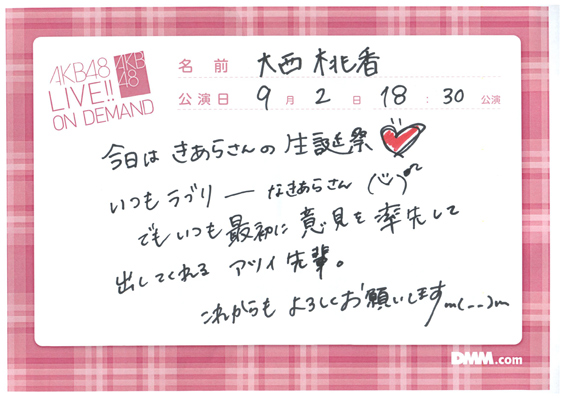 AKB48
LIVE!!
ON DEMAND
AKB
48
名前 大西桃香
公演日 9月2日 18:30公演
今日は きあらさんの 生誕祭
いつも ラブリーなきあらさん
でもいつも最初に意見を率先して
出してくれる アツイ先輩。
これからも よろしくお願いしますm(--)m
DMM.com